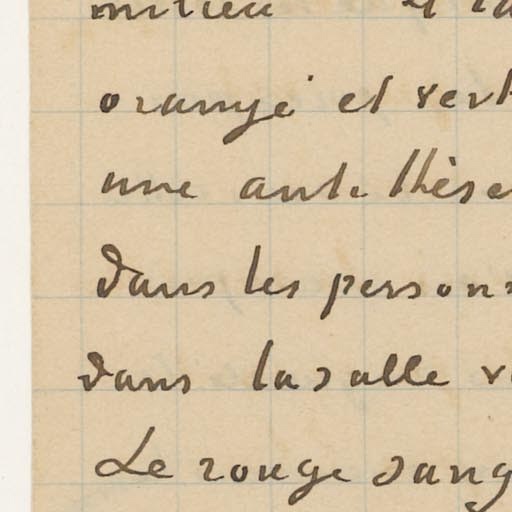 milieu
orangé et vert
une antithèse
dans les person
dans la salle
Le rouge sang